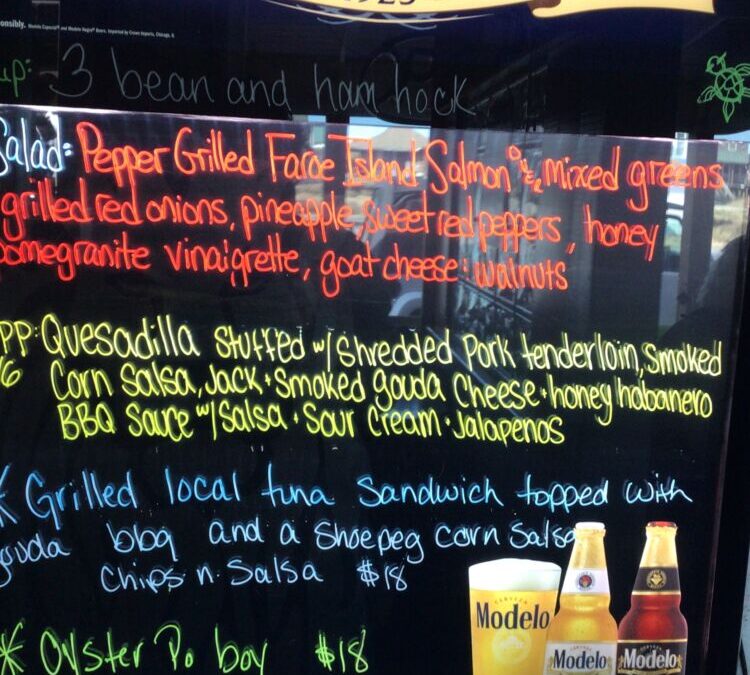 1925
onsibly. Modelo Especial® and Modelo Negra® Beers. Imported by Crown Imports, Chicago, IL
up: 3 bean and ham hock
Salad: Pepper Grilled Faroe Island Salmon o/ mixed greens
grilled red onions, pineapple, sweet red peppers, honey
pomegranite vinaigrette, goat cheese : walnuts
PP: Quesadilla stuffed w/ Shredded Pork tenderloin, smoked
16 Corn Salsa, Jack + Smoked gouda Cheese + honey habanero
BBQ Sauce w/ Salsa + Sour Cream + Jalapenos
* Grilled local tuna Sandwich topped with
gouda bbq and a Shoepeg corn Salsa
chips n Salsa $18
* Oyster Po boy $18
CERVEZA
Modelo
Modelo
Modelo